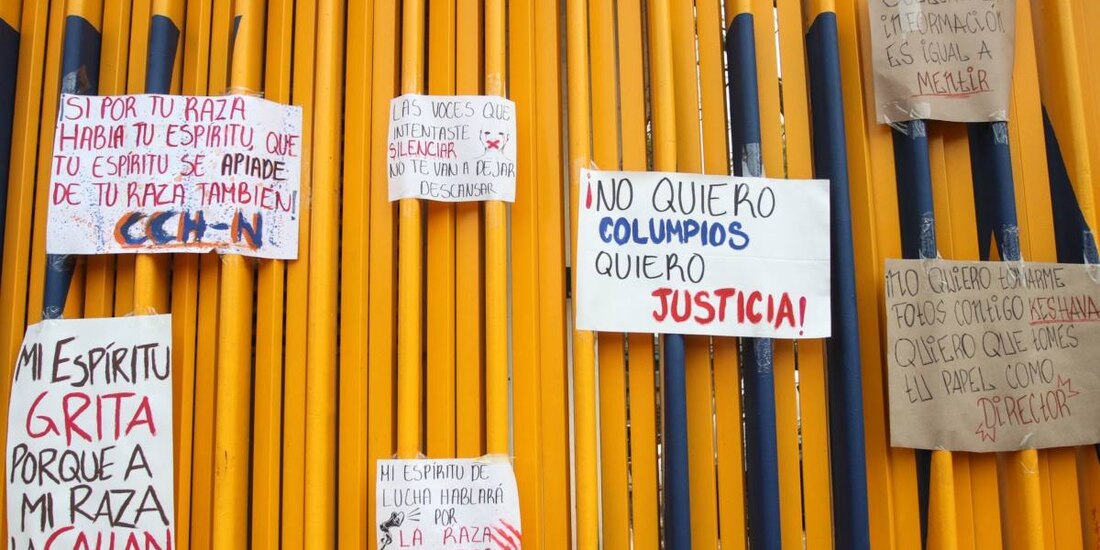 ¡SI POR TU RAZA
HABLA TU ESPIRITU, QUE
TU ESPÍRITU SE APIADE
DE TU RAZA TAMBIÉN!
CCH-N
LAS VOCES QUE
INTENTASTE
SILENCIAR
NO TE VAN A DEJAR
DESCANSAR
¡NO QUIERO
COLUMPIOS
QUIERO
JUSTICIA!
INFORMACIÓN
ES IGUAL A
MENTIR
¡NO QUIERO TOMARME
FOTOS CONTIGO KESHAVA
QUIERO QUE TOMES
TU PAPEL COMO
DIRECTOR
MI ESPÍRITU
GRITA
PORQUE A
MI RAZA
LA CALLAN
MI ESPÍRITU DE
LUCHA HABLARÁ
POR
LA RAZA